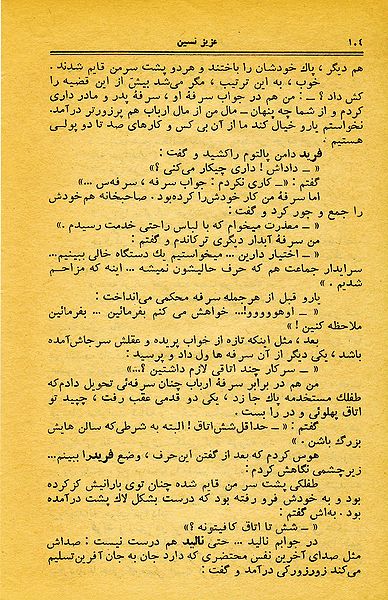 ۱۰۴ عزیز نسین
هم دیگر ، پاك خودشان را باختند و هردو پشت سرمن قایم شدند .
خوب ، به این ترتیب ، مگر می‌شد بیش از این قضیه را
کش داد ؟ ــ : من هم در جواب سرفهٔ او ، سرفهٔ پدر و مادر داری
کردم و از شما چه پنهان ــ مال من از مال ارباب هم پرزورتر درآمد.
نخواستم یارو خیال کند ما از آن بی کس و کارهای صد تا دو پولی
هستیم .
فرید دامن پالتوم راکشید و گفت :
« ــ داداش! داری چیکار می‌کنی ؟»
گفتم : «ــ کاری نکردم : جواب سرفه ، سرفه‌س ...»
اما سرفهٔ من کار خودش‌را کرده‌بود . صاحبخانه هم‌خودش
را جمع و جور کرد و گفت :
« ــ معذرت میخوام که با لباس راحتی خدمت رسیدم .»
من سرفهٔ آبدار دیگری ترکاندم و گفتم :
« ــ اختیار دارین ... میخواستیم یك دستگاه خالی ببینیم...
سرایدار جماعت هم که حرف حالیشون نمیشه ... اینه که مزاحم
شدیم . »
یارو قبل از هرجمله سرفه محکمی می‌انداخت :
« ــ اوهووووو!... خواهش می کنم بفرمائین ... بفرمائین
ملاحظه کنین ! »
بعد ، مثل اینکه تازه از خواب پریده و عقلش سرجاش‌آمده
باشد ، یکی دیگر از آن سرفه ها ول داد و پرسید :
« ــ سرکار چند اتاقی لازم داشتین ؟...»
من هم در برابر سرفهٔ ارباب چنان سرفه‌ئی تحویل دادم‌که
طفلك مستخدمه پاك جا زد ، یکی دو قدمی عقب رفت ، چپید تو
اتاق پهلوئی و در را بست .
گفتم : « ــ حداقل‌شش‌اتاق ! البته به شرطی‌که سالن هایش
بزرگ باشن . »
هوس کردم که بعد از گفتن این‌حرف ، وضع فریدرا ببینم...
زیرچشمی نگاهش کردم :
طفلکی پشت سر من قایم شده چنان توی بارانیش کزکرده
بود و به خودش فرو رفته بود که درست بشکل لاك پشت درآمده
بود . به‌اش گفتم :
« ــ شش تا اتاق کافیتونه ؟»
در جوابم نالید ... حتی نالید هم درست نیست : صداش
مثل صدای آخرین نفس محتضری که دارد جان به جان آفرین‌تسلیم
می‌کند زورزورکی درآمد و گفت :